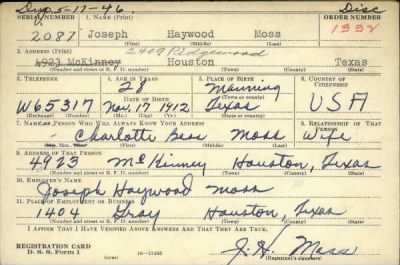 Dup 5-17-46. Disc
SERIAL NUMBER 1. NAME (Print) ORDER NUMBER
2087 Joseph Haywood Moss 1332
(First) (Middle) (Last)
2. ADDRESS (Print) 2409 Ridgewood
4923 McKinney Houston Texas
(Number and street or R. F. D. number) (Town) (County) (State)
3. TELEPHONE 4. AGE IN YEARS 5. PLACE OF BIRTH 6. COUNTRY OF CITIZENSHIP
28 Manning
DATE OF BIRTH (Town or county)
W65317 Nov. 17 1912 Texas USA
(Exchange) (Number) (Mo.) (Day) (Yr.) (State or country)
7. NAME OF PERSON WHO WILL ALWAYS KNOW YOUR ADDRESS 8. RELATIONSHIP OF THAT PERSON
Charlotte Moss Wife
(Mr., Mrs., Miss) (First) (Middle) (Last)
9. ADDRESS OF THAT PERSON
4923 McKinney Houston, Texas
(Number and street or R. F. D. number) (Town) (County) (State)
10. EMPLOYER'S NAME
Joseph Haywood Moss
11. PLACE OF EMPLOYMENT OR BUSINESS
1404 Gray Houston, Texas
(Number and street or R. F. D. number) (Town) (County) (State)
I AFFIRM THAT I HAVE VERIFIED ABOVE ANSWERS AND THAT THEY ARE TRUE.
REGISTRATION CARD
D. S. S. Form 1 16-17105 J. H. Moss
(over) (Registrant's signature)